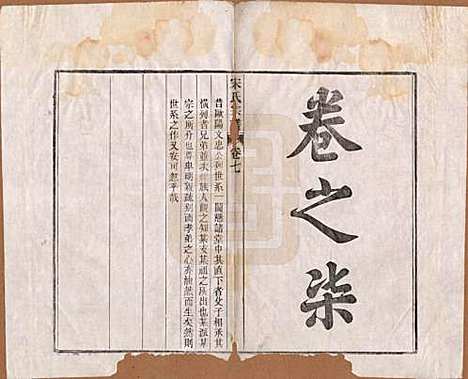 卷之柒
宋氏宗譜 卷七
昔歐陽文忠公列世系一圖懸諸堂中其直下者父子相承其
橫列者兄弟並次族人觀之知某支某祖之所出也某派某
宗之所分也尊卑明親疏別而孝弟之心亦油然而生矣然則
世系之作又安可忽乎哉